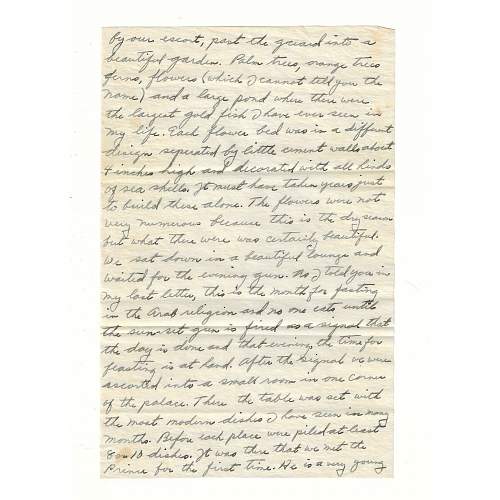 by our escort, past the guard into a
beautiful garden. Palm trees, orange trees
ferns, flowers (which I cannot tell you the
name) and a large pond where there were
the largest gold fish I have ever seen in
my life. Each flower bed was in a different
design seperated by little cement walls about
4 inches high and decorated with all kinds
of sea shells. It must have taken years just
to build these alone. The flowers were not
very numerous because this is the dry season
but what there were was certainly beautiful.
We sat down in a beautiful lounge and
waited for the evening gun. As I told you in
my last letter, this is the month for fasting
in the Arab religion and no one eats until
the sun-set gun is fired as a signal that
the day is done and that evening, the time for
feasting is at hand. After the signal we were
ascorted into a small room in one corner
of the palace. There the table was set with
the most modern dishes I have seen in many
months. Before each place were piled at least
8 or 10 dishes. It was there that we met the
Prince for the first time. He is a very young